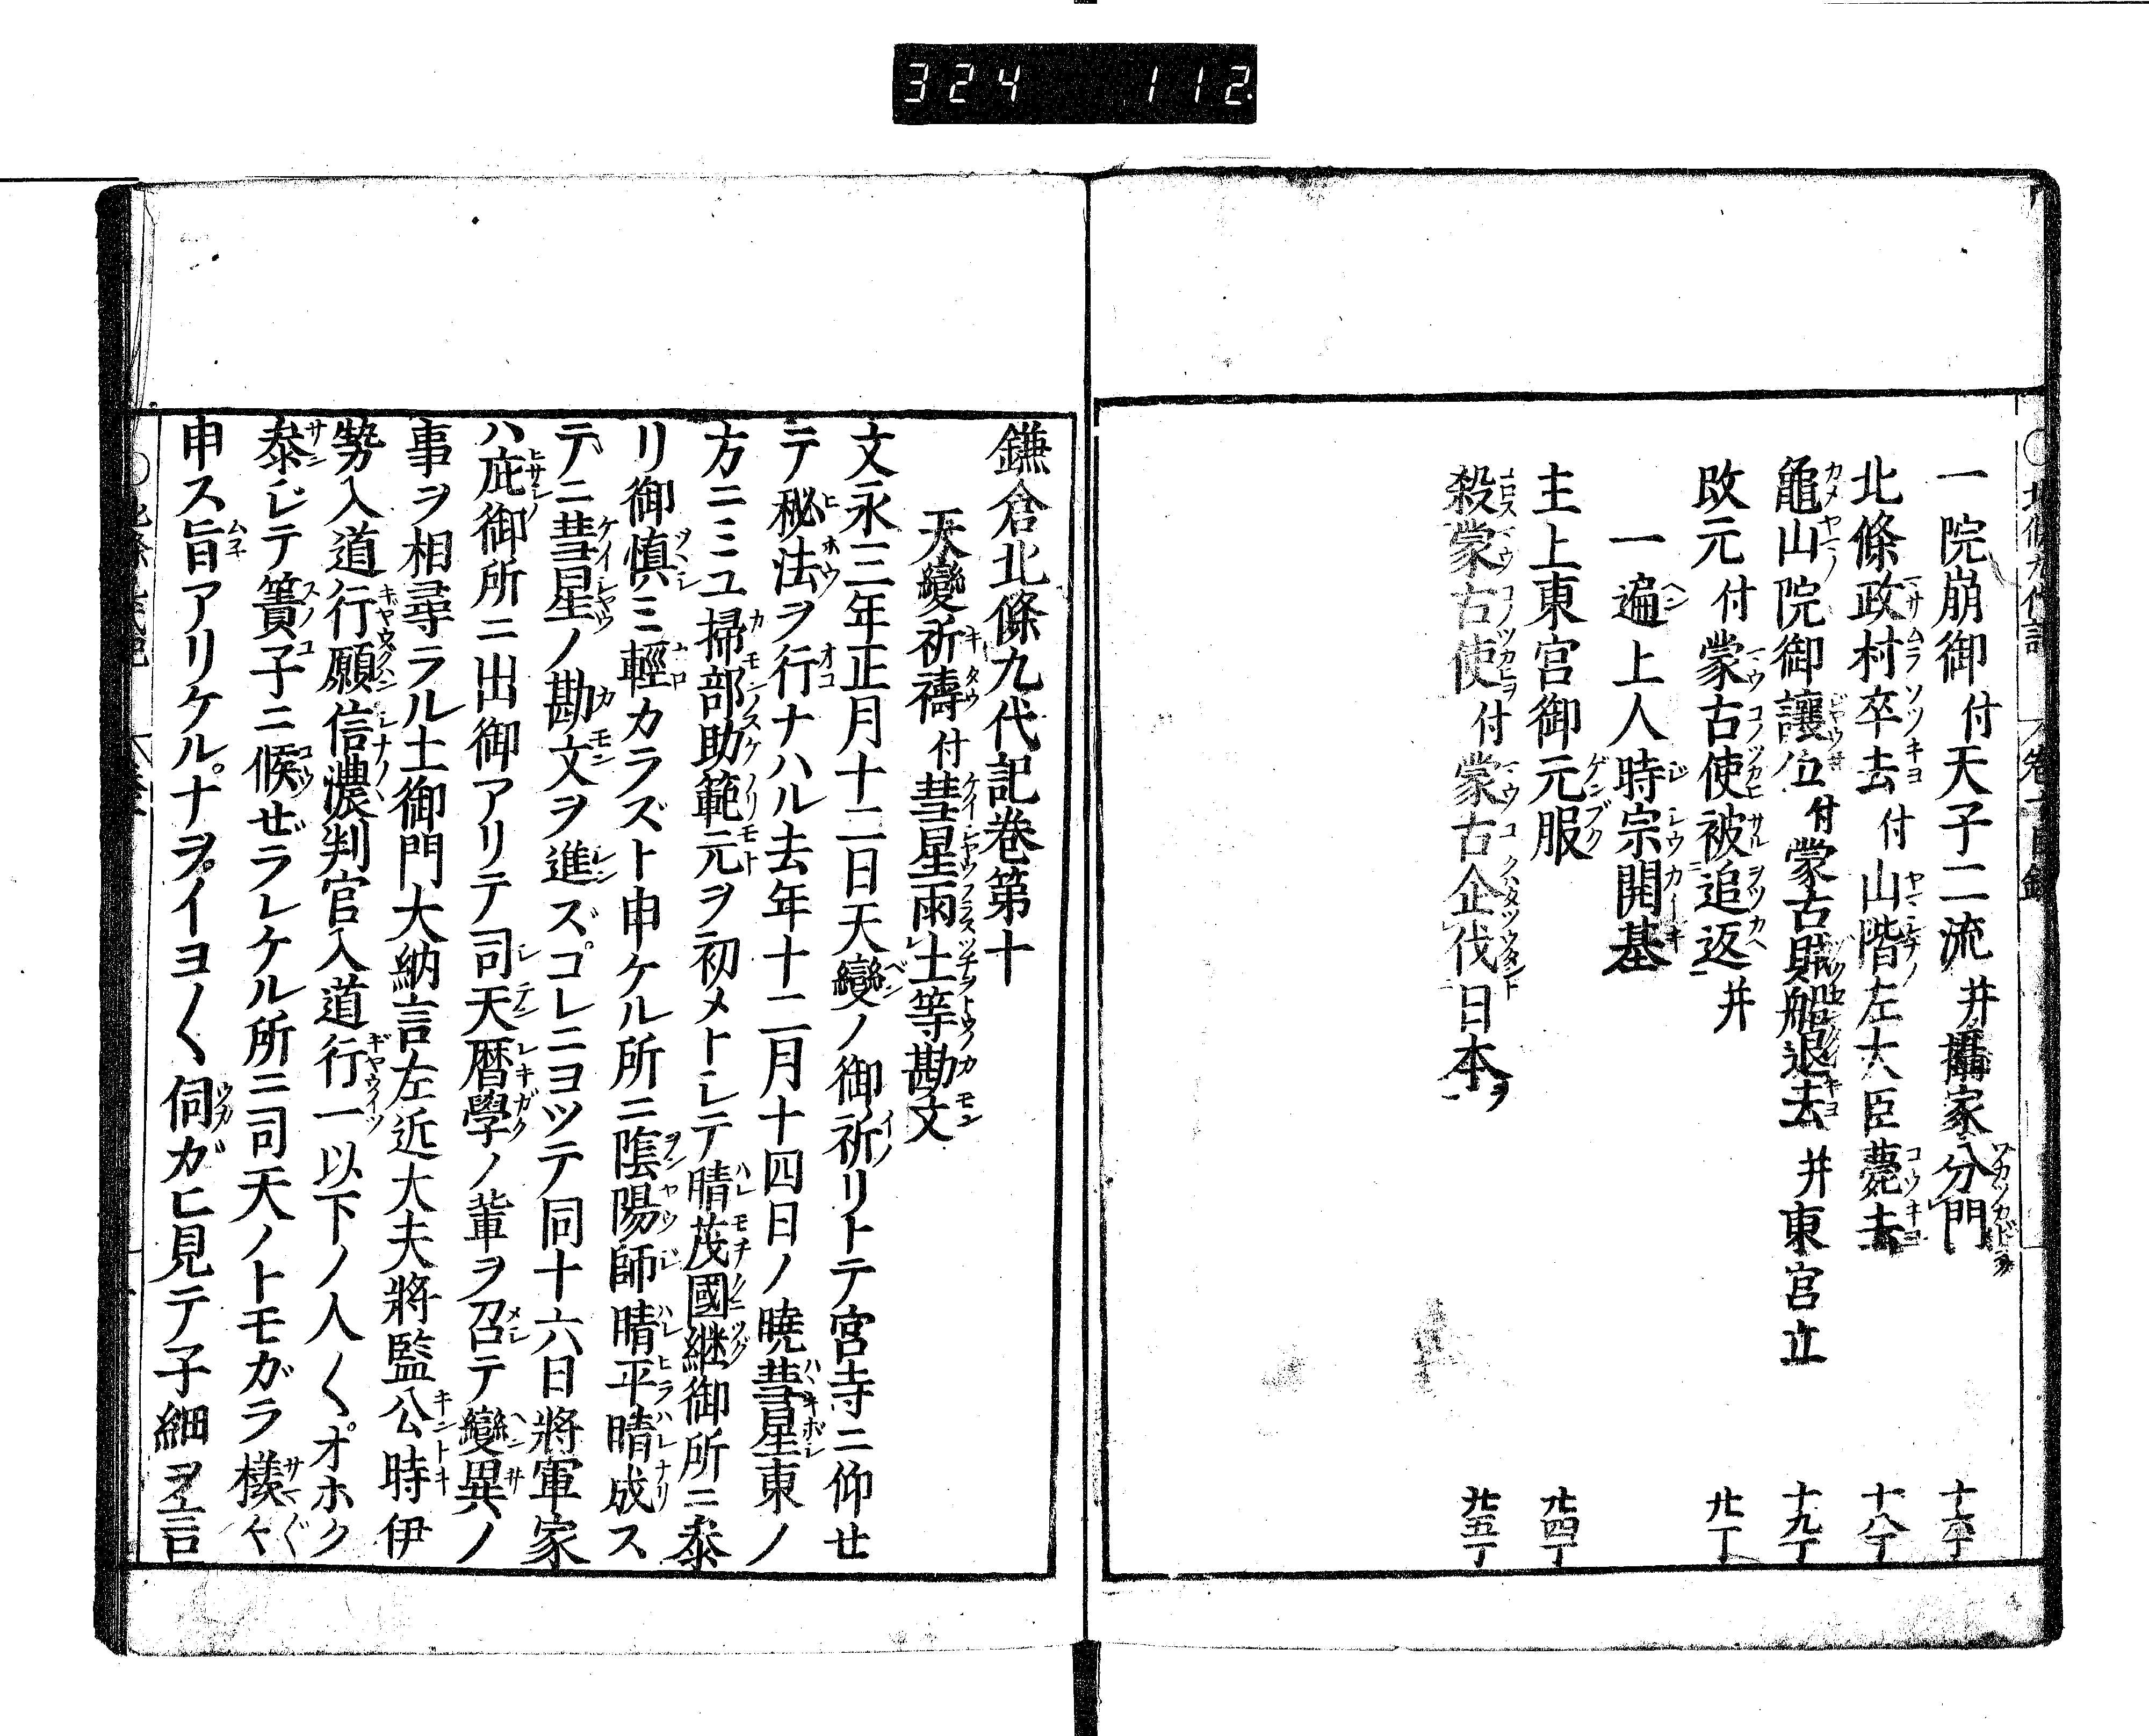 324 112
一院崩御付天子二流幷攝家分門 十六丁
北條政村卒去付山階左大臣薨去 十八丁
龜山院御讓位付蒙古賊船退去幷東宮立 十九丁
改元付蒙古使被追返幷 廿一丁
一遍上人時宗開基
主上東宮御元服 廿四丁
殺蒙古使付蒙古企伐日本 廿五丁
鎌倉北條九代記巻第十
天變祈禱付彗星雨土等勘文
文永三年正月十二日天變ノ御祈リトテ宮寺ニ仰せ
テ秘法ヲ行ナハル去年十二月十四日ノ曉彗星東ノ
方ニミユ掃部助範元ヲ初メトシテ晴茂國継御所ニ泰
リ御慎ミ輕カラズト申ケル所ニ陰陽師晴平晴成ス
デニ彗星ノ勘文ヲ進ズコレニヨツテ同十六日將軍家
ハ庇御所ニ出御アリテ司天暦學ノ輩ヲ召テ變異ノ
事ヲ相尋ラル土御門大納言左近大夫將監公時伊
勢入道行願信濃判官入道行一以下ノ人〱オホク
泰ジテ簀子ニ候ぜラレケル所ニ司天ノトモガラ様々
申ス旨アリケルナヲイヨ〱伺ガヒ見テ子細ヲ言